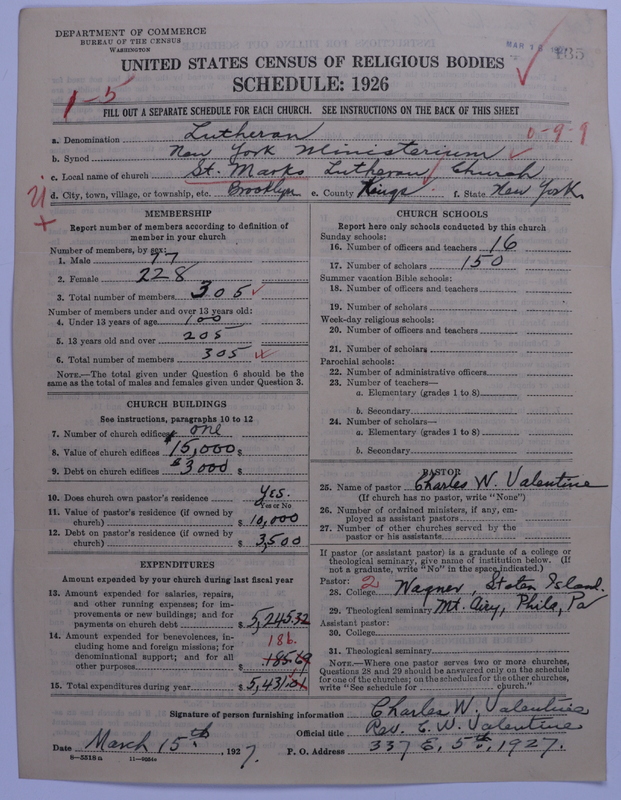 DEPARTMENT OF COMMERCE
BUREAU OF THE CENSUS
WASHINGTON
MAR 485
UNITED STATES CENSUS OF RELIGIOUS BODIES
SCHEDULE: 1926
1-5
FILL OUT A SEPARATE SCHEDULE FOR EACH CHURCH. SEE INSTRUCTIONS ON THE BACK OF THIS SHEET
a. Denomination Lutheran 0-9-9
b. Synod New York Ministerium
c. Local name of church St. Marks Lutheran Church
d. City, town, village, or township, etc. Brooklyn e. County Kings f. State New York
MEMBERSHIP
Report number of members according to definition of
member in your church
Number of members, by sex:
1. Male 77
2. Female 228
3. Total number of members 305
Number of members under and over 13 years old:
4. Under 13 years of age 100
5. 13 years old and over 205
6. Total number of members 305
NOTE.—The total given under Question 6 should be
same as the total of males and females given under Question 3.
CHURCH BUILDINGS
See instructions, paragraphs 10 to 12
7. Number of church edifices one
8. Value of church edifices $15,000 $
9. Debt on church edifices $3000 $
10. Does church own pastor's residence Yes.
Yes or No
11. Value of pastor's residence (if owned by
church) $ 10,000
12. Debt on pastor's residence (if owned by
church) $ 3,500
EXPENDITURES
Amount expended by your church during last fiscal year
13. Amount expended for salaries, repairs,
and other running expenses; for im-
provements or new buildings; and for
payments on church debt $ 5,245.32
14. Amount expended for benevolences, in- 186.
cluding home and foreign missions; for
denominational support; and for all
other purposes $ 185.69
15. Total expenditures during year $ 5,431.01
CHURCH SCHOOLS
Report here only schools conducted by this church
Sunday schools:
16. Number of officers and teachers 16
17. Number of scholars 150
Summer vacation Bible schools:
18. Number of officers and teachers
19. Number of scholars
Week-day religious schools:
20. Number of officers and teachers
21. Number of scholars
Parochial schools:
22. Number of administrative officers
23. Number of teachers—
a. Elementary (grades 1 to 8)
b. Secondary
24. Number of scholars—
a. Elementary (grades 1 to 8)
b. Secondary
PASTOR
25. Name of pastor Charles W. Valentine
(If church has no pastor, write "None")
26. Number of ordained ministers, if any, em-
ployed as assistant pastors
27. Number of other churches served by the
pastor or his assistants
If pastor (or assistant pastor) is a graduate of a college or
theological seminary, give name of institution below. (If
not a graduate, write "No" in the space indicated.)
Pastor: 2
28. College Wagner, Staten Island.
29. Theological seminary Mt. Airy, Phila, Pa
Assistant pastor:
30. College
31. Theological seminary
NOTE.—Where one pastor serves two or more churches,
Questions 28 and 29 should be answered only on the schedule
for one of the churches; on the schedules for the other churches,
write "See schedule for church."
Signature of person furnishing information Charles W. Valentine
Official title Rev. C. W. Valentine
Date March 15th, 1927. P. O. Address 337 E, 5th, 1927.
8-5518 a 11-9034a